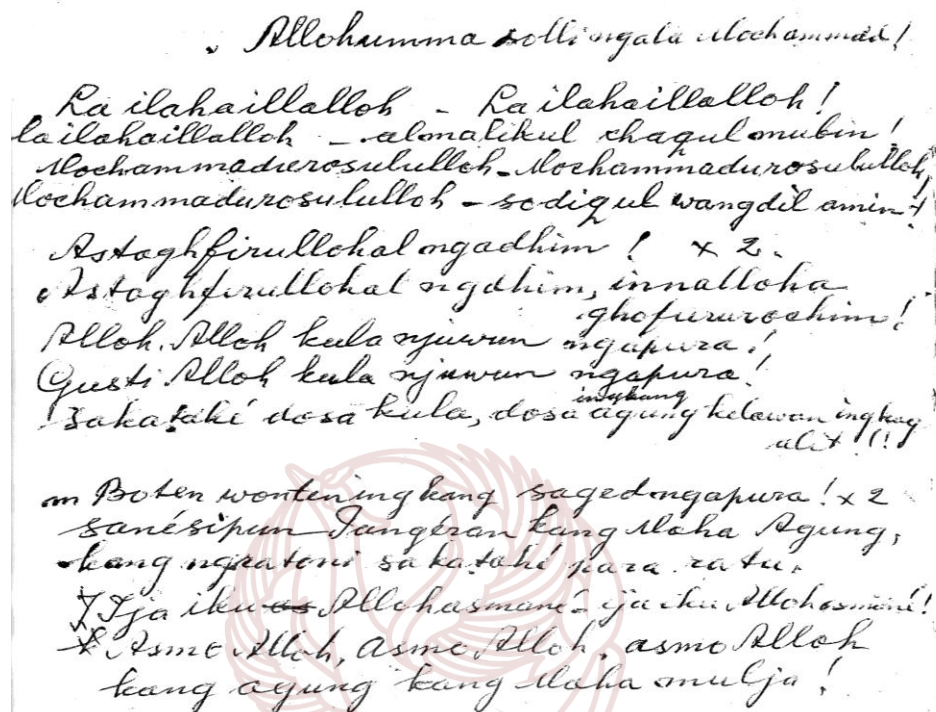 Allohumma solli ngala Mochammad!
La ilahaillalloh - La ilahaillalloh!
la ilahaillalloh - almalikul chaqul mubin!
Mochammadurosululloh - Mochammadurosululloh,
Mochammadurosululloh - sodiqul wangdil amin!
Astaghfirullohal ngadhim! x 2.
Astaghfirullohal ngdhim, innalloha
ghofururochim!
Alloh. Alloh kula njuwun ngapura!
Gusti Alloh kula njuwun ngapura!
Sakatahé dosa kula, dosa ingkang agung kelawan ingkag
alit!!!
Boten wonten ingkang saged ngapura! x 2
sanésipun Pangéran kang Maha Agung,
kang ngratoni sakatahé para ratu.
Ija iku Allohasmané - ija iku Allohasmané!
Asmo Alloh, asmo Alloh, asmo Alloh
kang agung kang Maha mulja!